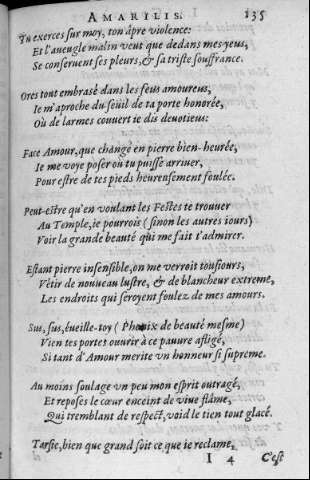 AMARILIS. 135
Tu exerces sur moy, ton âpre violence:
Et l'aueugle malin veut que dedans mes yeus,
Se conseruent ses pleurs, & sa triste souffrance.
Ores tout embrasé dans les feus amoureus,
Ie m'aproche du seuil de ta porte honorée,
Où de larmes couuert ie dis deuotieus:
Face Amour, que changé en pierre bien-heurée,
Ie me voye poser où tu puisse arriuer,
Pour estre de tes pieds heureusement foulée.
Peut-estre qu'en voulant les Festes te trouuer
Au Temple, ie pourrois (sinon les autres iours)
Voir la grande beauté qui me fait t'admirer.
Estant pierre insensible, on me verroit tousiours,
Vétir de nouueau lustre, & de blancheur extreme,
Les endroits qui seroyent foulez de mes amours.
Sus, sus, éueille-toy (Phœnix de beauté mesme)
Vien tes portes ouurir à ce pauure afligé,
Si tant d'Amour merite vn honneur si supreme.
Au moins soulage vn peu mon esprit outragé,
Et reposes le cœur enceint de viue flâme,
Qui tremblant de respect, void le tien tout glacé.
Tarsie, bien que grand soit ce que ie reclame,
I 4 C'est